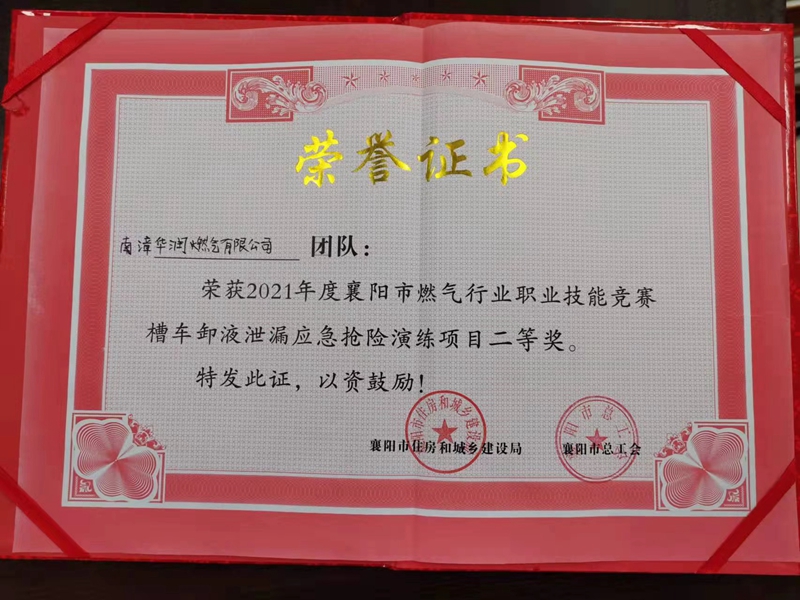 荣誉证书
南漳华润燃气有限公司 团队：
荣获2021年度襄阳市燃气行业职业技能竞赛
槽车卸液泄漏应急抢险演练项目二等奖。
特发此证，以资鼓励！
襄阳市住房和城乡建设局 襄阳市总工会